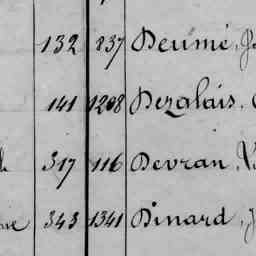 132 237 Deumié, J
141 1208 Dezglais,
317 116 Devran, V
343 1341 Dinard, J